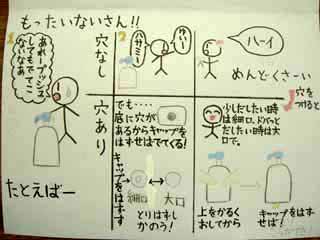 もったいないさん!!
1
あれ〜プッシュ
しても
でてこ
ないなぁ
穴なし
2
ハサミ〜
クリー
ハーイ
めんどくさーい
穴を
つけると
穴あり
でも‥‥
底に穴が
あるからキャップを
はずせばでてくる!
少しだしたい時
は細口、ドバっと
だしたい時は大
口で。
たとえばー
キャップをはずす
細口
大口
とりはずし
かのう!
上をかるく
おしてから
キャップをはず
せば!